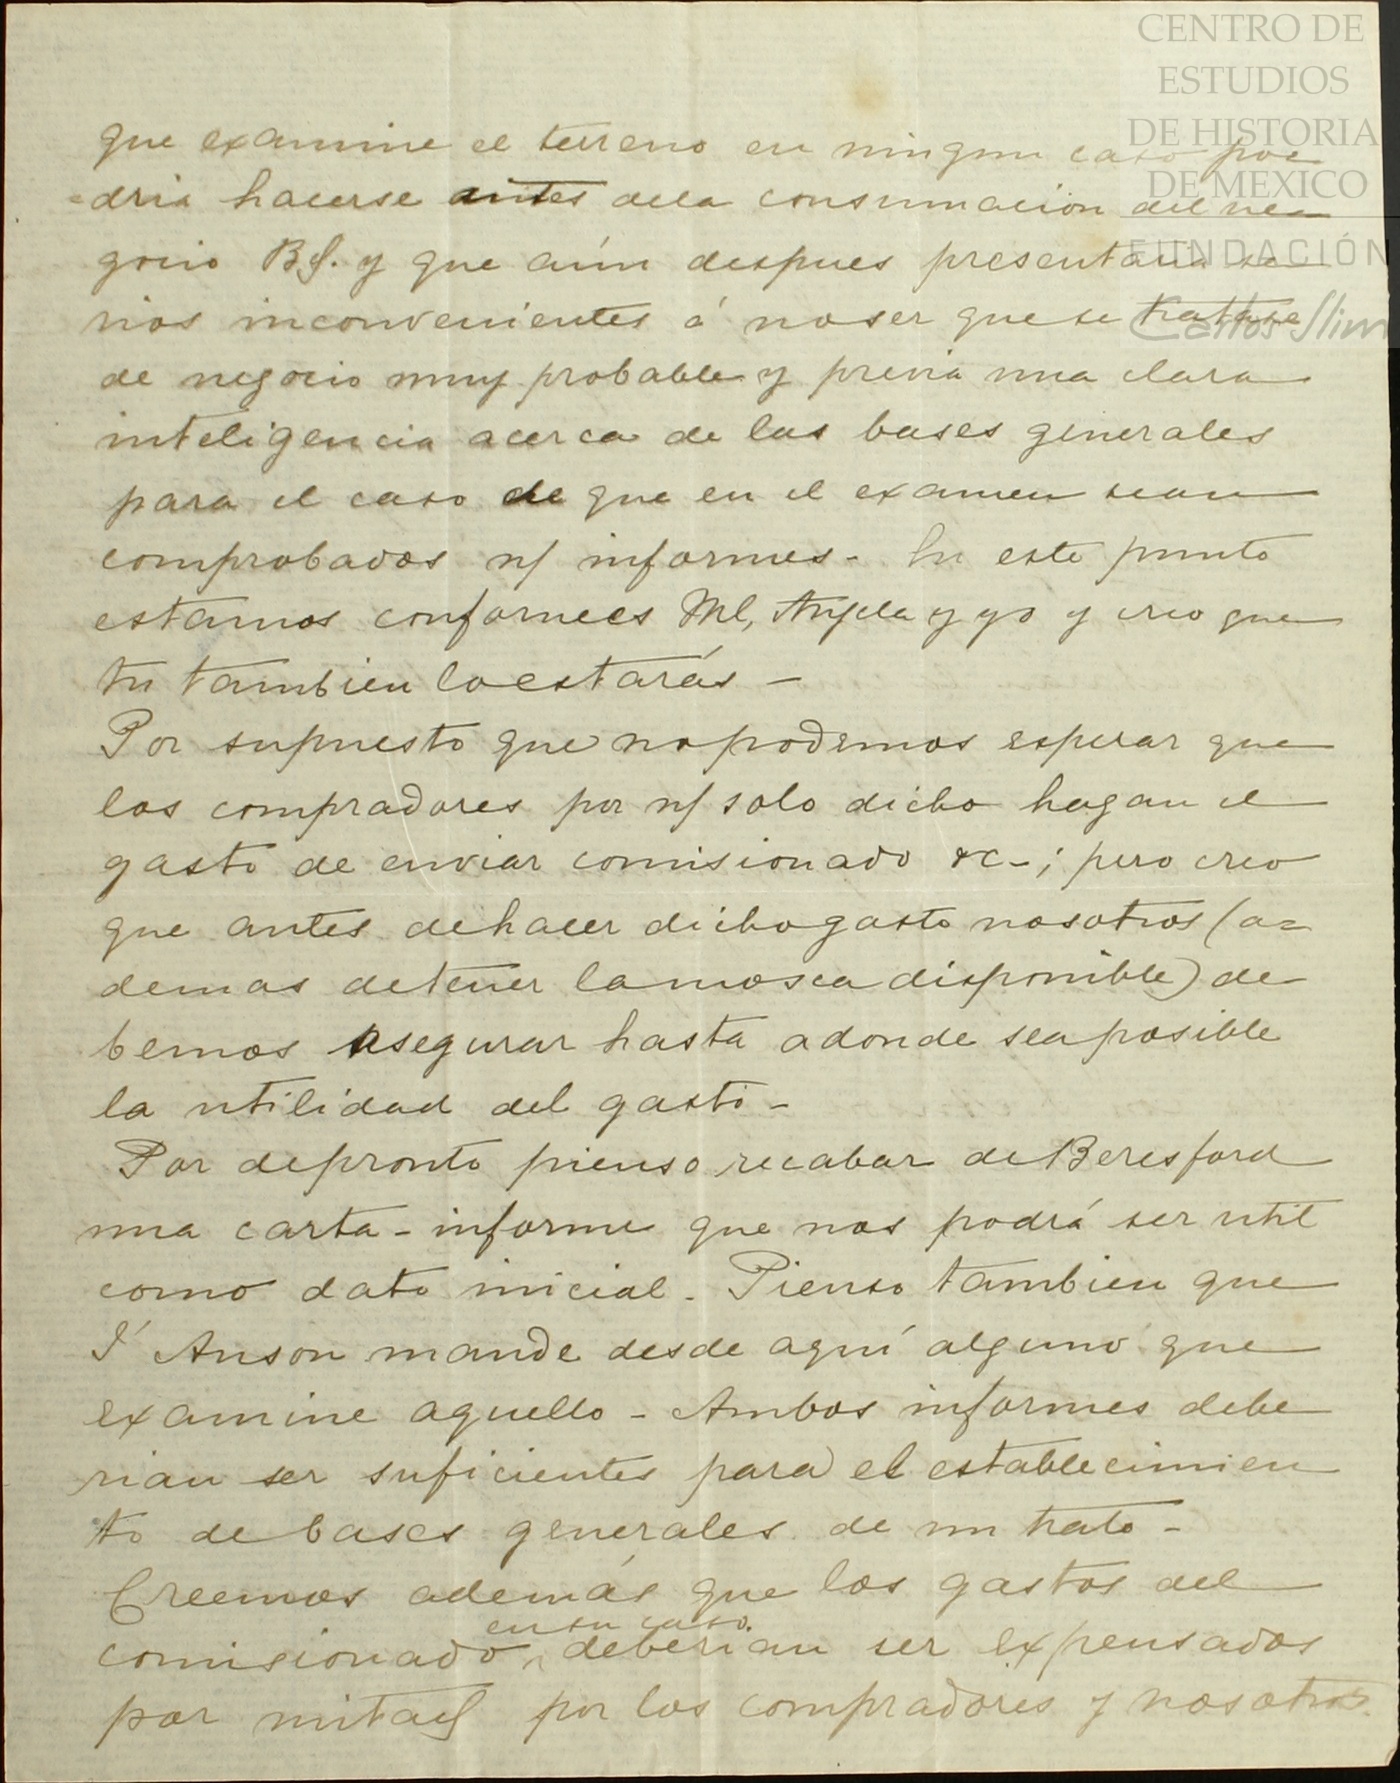 CENTRO DE
ESTUDIOS
DE HISTORIA
DE MEXICO
FUNDACIÓN
Carlos Slim
que examine el terreno en ningun caso po-
-dria hacerse antes dela consumacion del ne-
gocio BS. y que aún despues presentaria se-
rios inconvenientes á no ser que se tratase
de negocio muy probable y previa una clara
inteligencia acerca de las bases generales
para el caso de que en el examen sean
comprobados n/ informes - En este punto
estamos conformes Ml, Angela y yo y creo que
tu tambien lo estarás -
Por supuesto que no podemos esperar que
los compradores por n/ solo dicho hagan el
gasto de enviar comisionado &c-; pero creo
que antes de hacer dicho gasto nosotros (a=
demas de tener la mosca disponible) de-
bemos asegurar hasta adonde sea posible
la utilidad del gasto -
Por depronto pienso recabar de Beresford
una carta - informe que nos podrá ser util
como dato inicial - Pienso tambien que
I' Anson mande desde aquí alguno que
examine aquello - Ambos informes debe
rian ser suficientes para el establecimien
to de bases generales de un trato -
Creemos además que los gastos del
en su caso
comisionado, deberian ser expensados
por mitad por los compradores y nosotros.